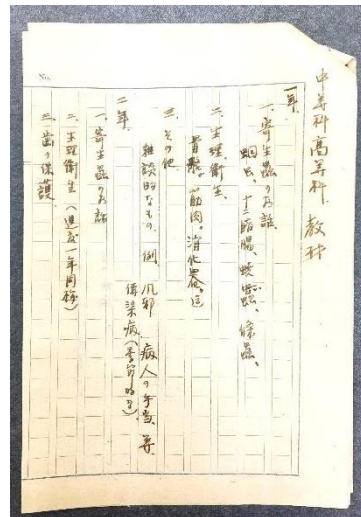 中等科高等科 教材
一年、
一、寄生蟲のお話
蛔虫、十二指腸、蟯蟲、條蟲、
二、生理衛生、
骨骼、筋肉、消化器、
三、その他
雑談的なもの、例、風邪 病人の手当、等
傳染病(季節的な)、
二年、
一、寄生蟲のお話
二、生理衛生(進度一年同様)
三、歯の保護
No.